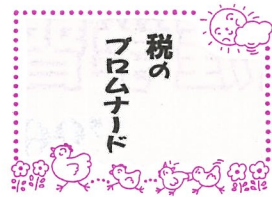 税の
プロムナード